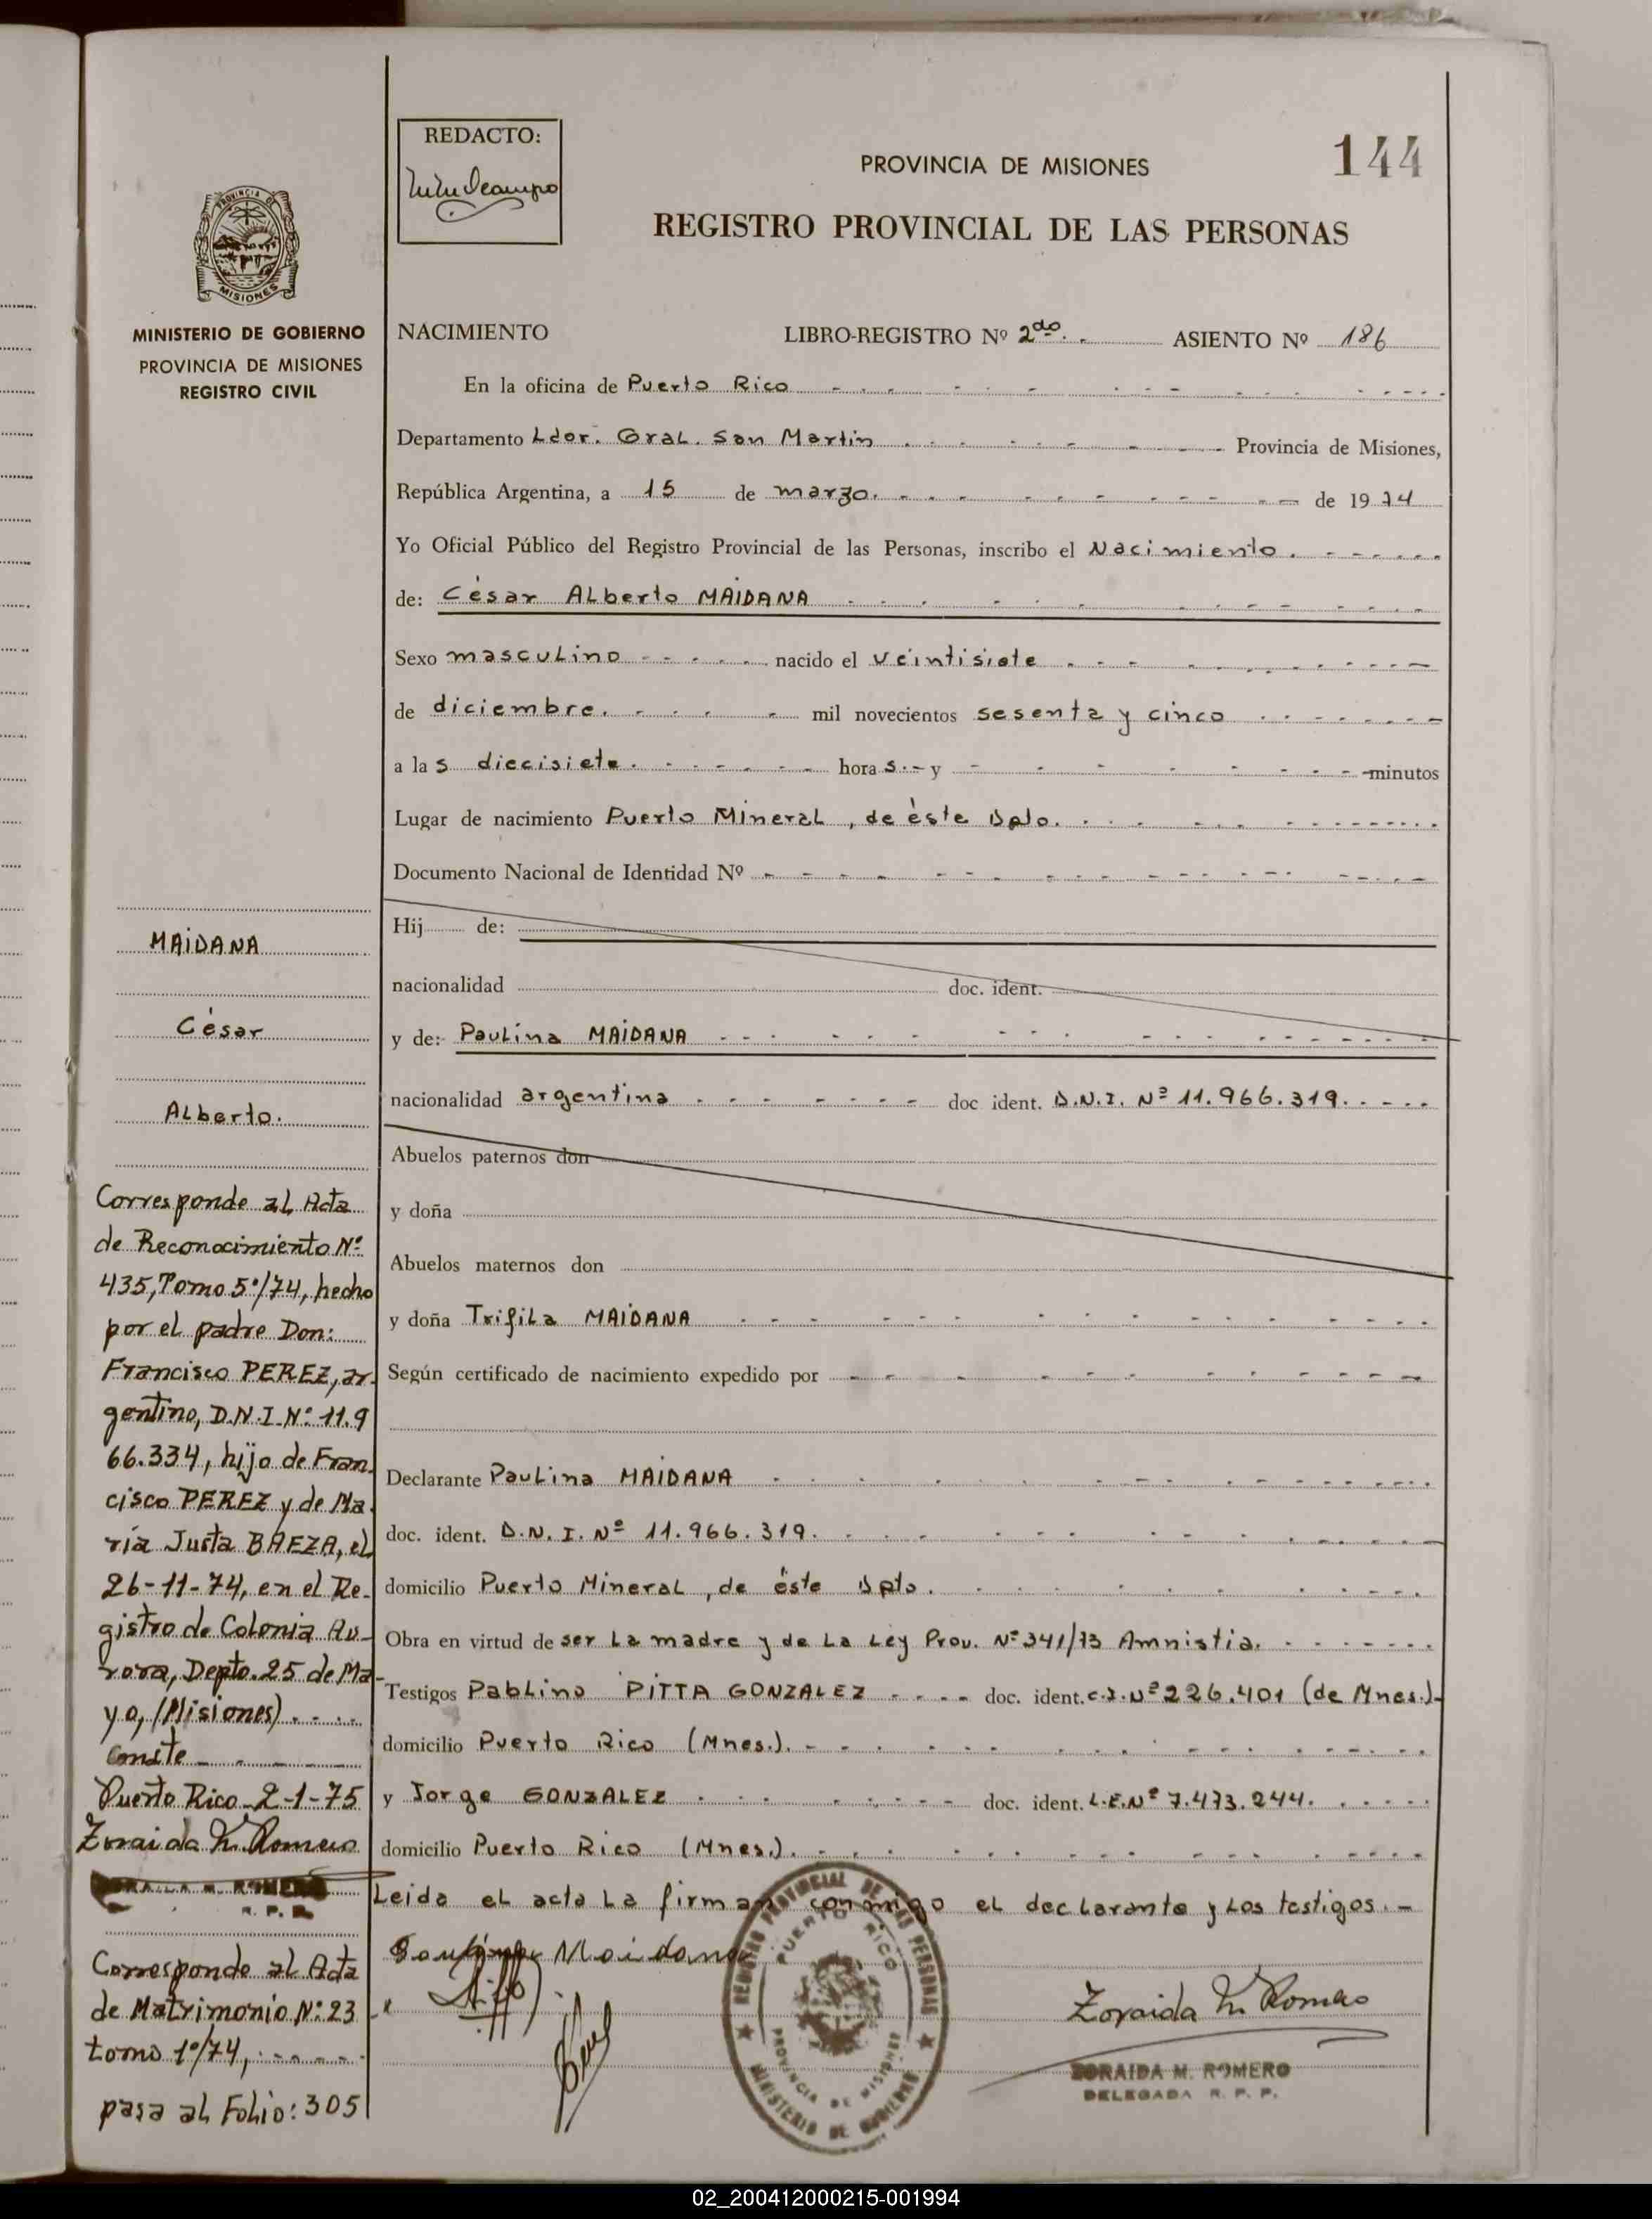 144
REDACTO:
PROVINCIA DE MISIONES
REGISTRO PROVINCIAL DE LAS PERSONAS
PROVINCIA DE
MISIONES
MINISTERIO DE GOBIERNO
PROVINCIA DE MISIONES
REGISTRO CIVIL
NACIMIENTO LIBRO-REGISTRO Nº 2do. ASIENTO Nº 186
En la oficina de Puerto Rico
Departamento Ldor. Gral. San Martin Provincia de Misiones,
República Argentina, a 15 de marzo. de 1974
Yo Oficial Público del Registro Provincial de las Personas, inscribo el Nacimiento.
de: César Alberto MAIDANA
Sexo masculino nacido el veintisiete
de diciembre. mil novecientos sesenta y cinco
a las diecisiete. horas.- y - minutos
Lugar de nacimiento Puerto Mineral, de éste Dpto.
Documento Nacional de Identidad Nº
Hij de:
nacionalidad doc. ident.
y de: Paulina MAIDANA
nacionalidad argentina doc ident. D.N.I. Nº 11.966.319.
Abuelos paternos don
y doña
Abuelos maternos don
y doña Trifila MAIDANA
Según certificado de nacimiento expedido por
Declarante Paulina MAIDANA
doc. ident. D.N.I. Nº 11.966.319.
domicilio Puerto Mineral, de éste Dpto.
Obra en virtud de ser la madre y de la Ley Prov. Nº 341/73 Amnistia.
Testigos Pablino PITTA GONZALEZ doc. ident. C.I. Nº 226.401 (de Mnes.)-
domicilio Puerto Rico (Mnes.).
y Jorge GONZALEZ doc. ident. L.E. Nº 7.473.244.
domicilio Puerto Rico (Mnes.).
Leida el acta la firman conmigo el declarante y los testigos.-
Maidana
Zoraida M. Romero
ZORAIDA M. ROMERO
DELEGADA R. P. P.
REGISTRO PROVINCIAL DE LAS PERSONAS
PUERTO RICO
PROVINCIA DE MISIONES
MINISTERIO DE GOBIERNO
MAIDANA
César
Alberto.
Corresponde al Acta
de Reconocimiento Nº
435, Tomo 5º/74, hecho
por el padre Don:
Francisco PEREZ, ar-
gentino, D.N.I. Nº 11.9
66.334, hijo de Fran-
cisco PEREZ y de Ma-
ría Justa BAEZA, el
26-11-74, en el Re-
gistro de Colonia Au-
rora, Depto. 25 de Ma-
yo, (Misiones)
Conste
Puerto Rico 2-1-75
Zoraida M. Romero
ZORAIDA M. ROMERO
R. P. P.
Corresponde al Acta
de Matrimonio Nº: 23
tomo 1º/74,
pasa al Folio: 305
02_200412000215-001994